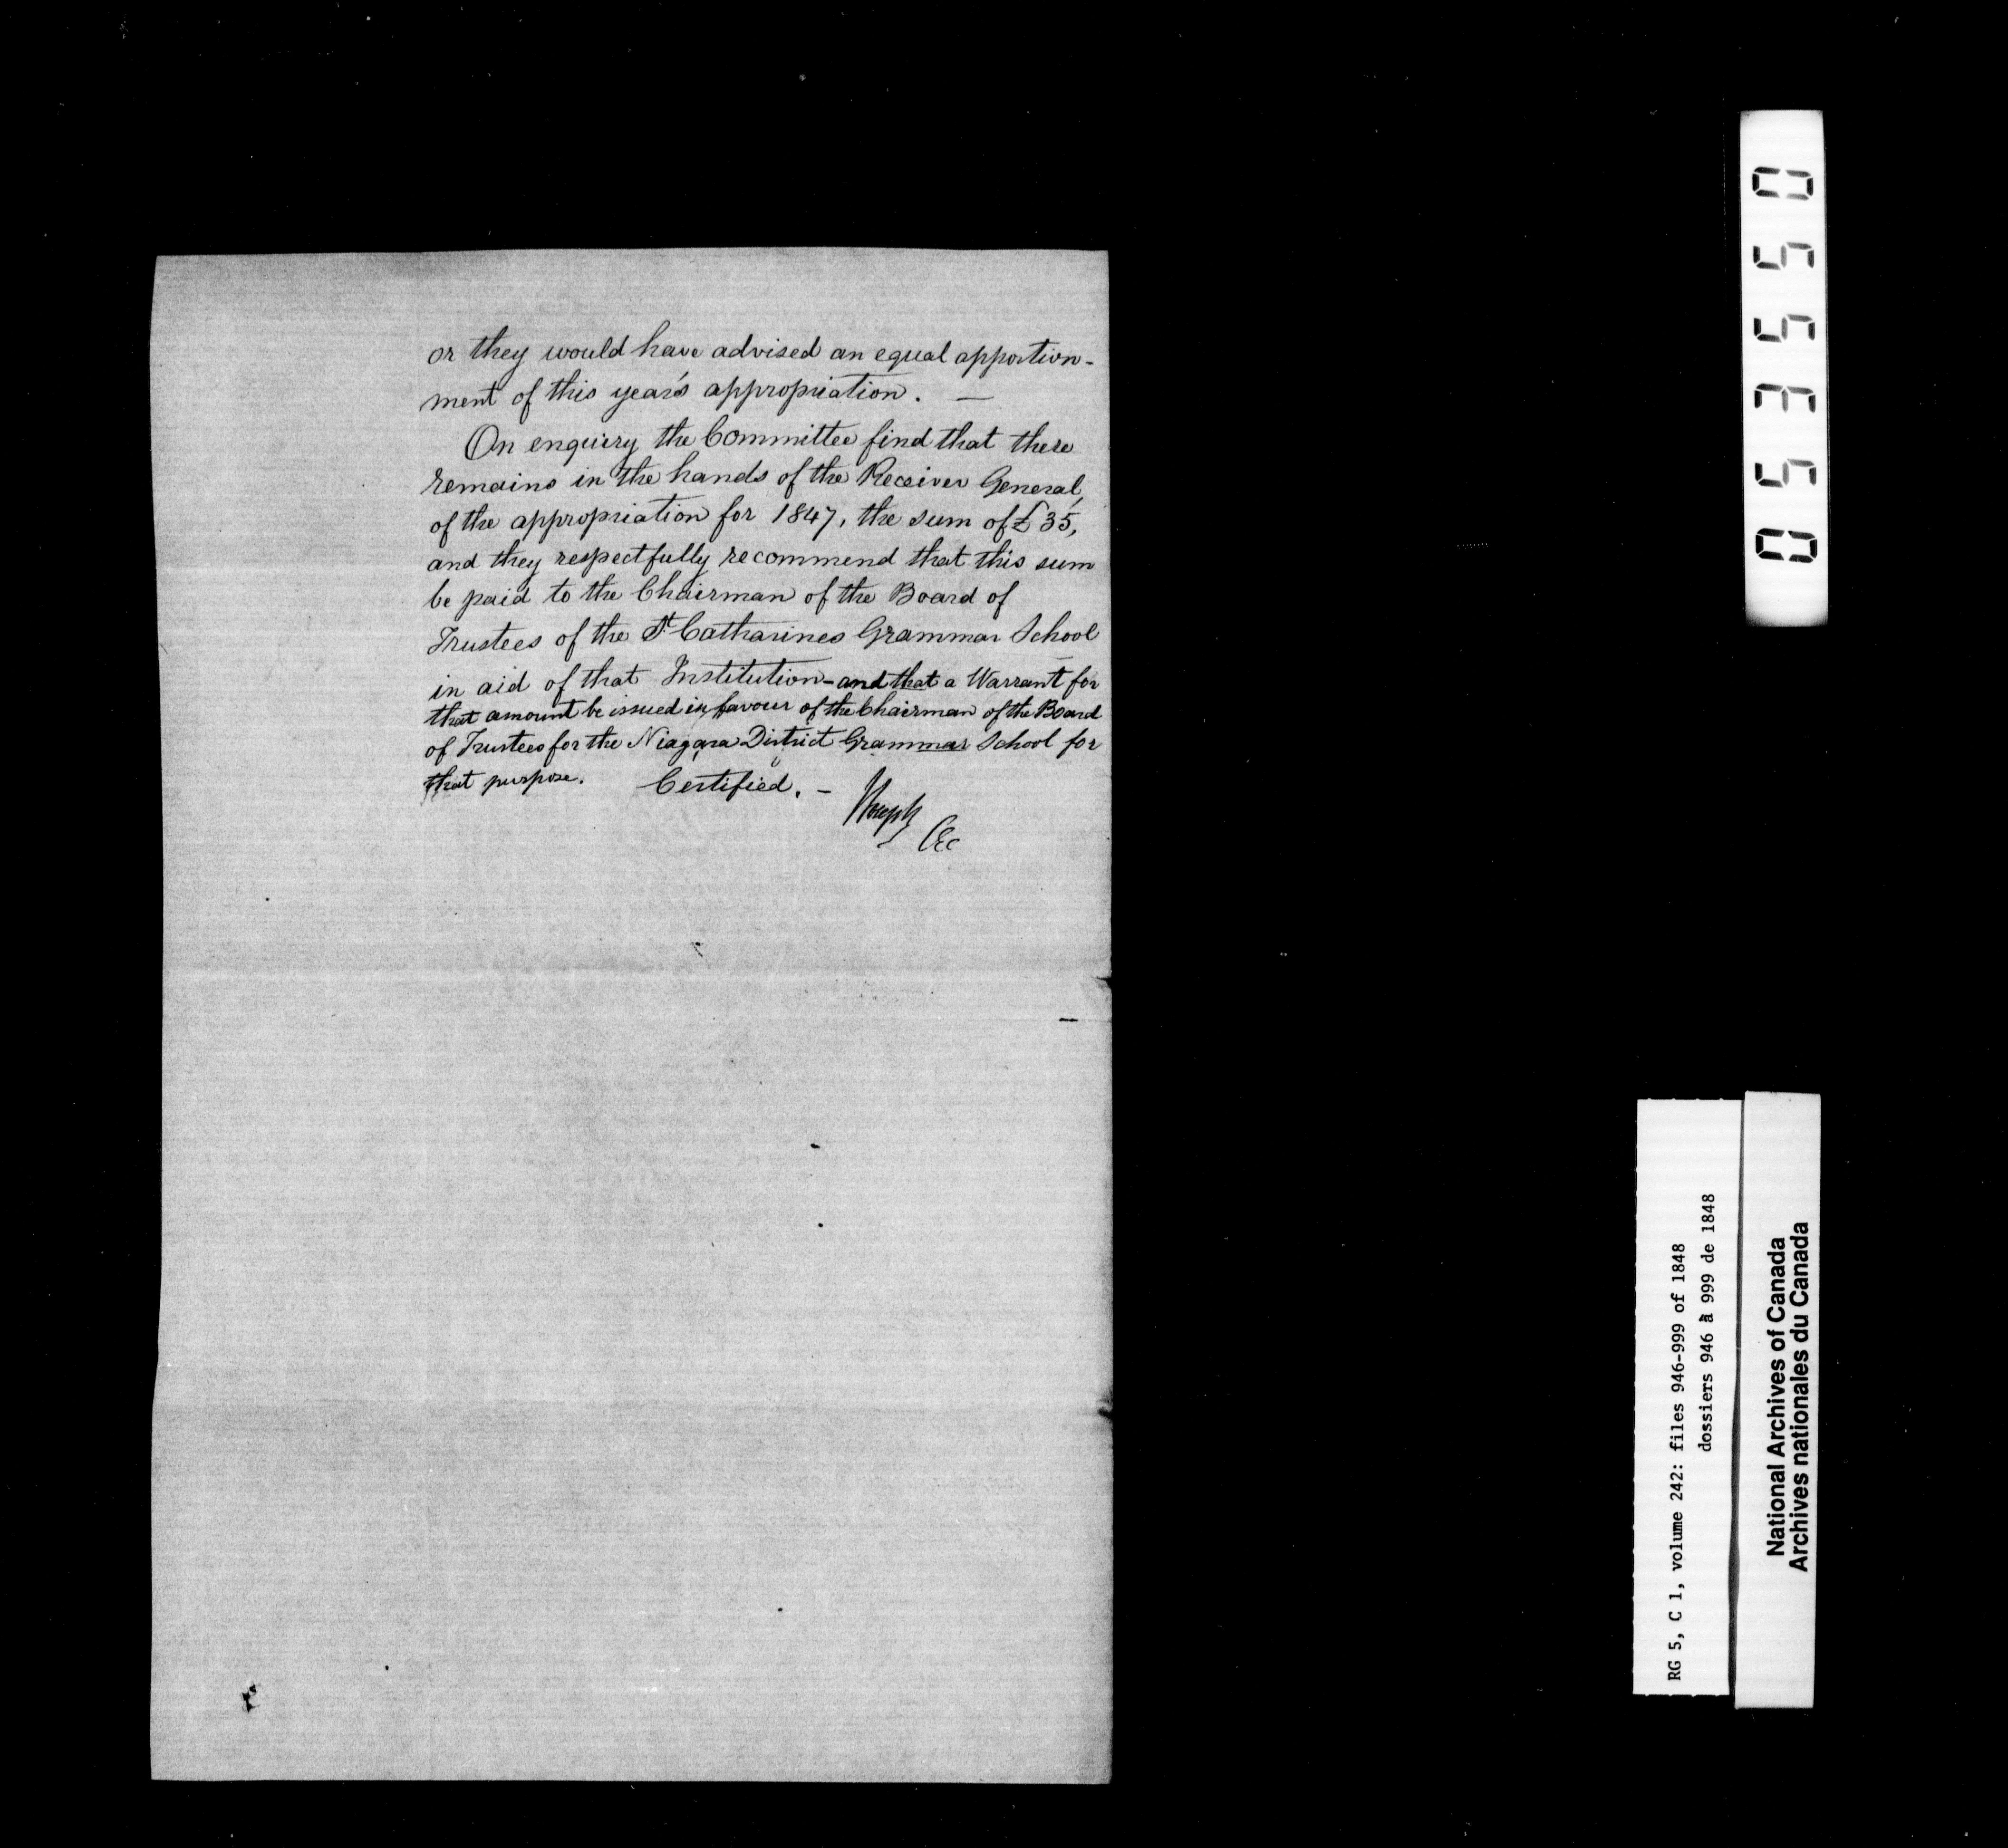 or they would have advised an equal apportion-
ment of this year's appropriation. —
On enquiry the Committee find that there
remains in the hands of the Receiver General,
of the appropriation for 1847, the sum of £35,
and they respectfully recommend that this sum
be paid to the Chairman of the Board of
Trustees of the St Catharines Grammar School
in aid of that Institution - and that a Warrant for
that amount be issued in favour of the Chairman of the Board
of Trustees for the Niagara District Grammar School for
that purpose. Certified. -
Joseph
CEC
053550
RG 5, C 1, volume 242: files 946-999 of 1848
dossiers 946 à 999 de 1848
National Archives of Canada
Archives nationales du Canada